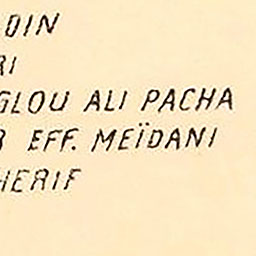 DIN
RI
GLOU ALI PACHA
R EFF. MEÏDANI
HERIF